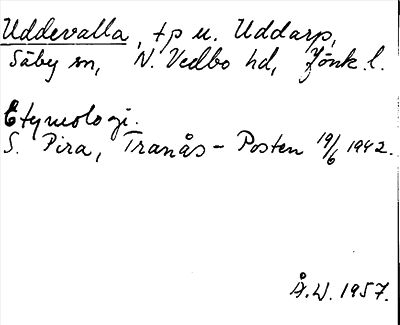 Uddevalla, tp u. Uddarp,
Säby sn, N. Vedbo hd, Jönk. l.
Etymologi.
S. Pira, Tranås-Posten 19/6 1942.
Å.W. 1957.